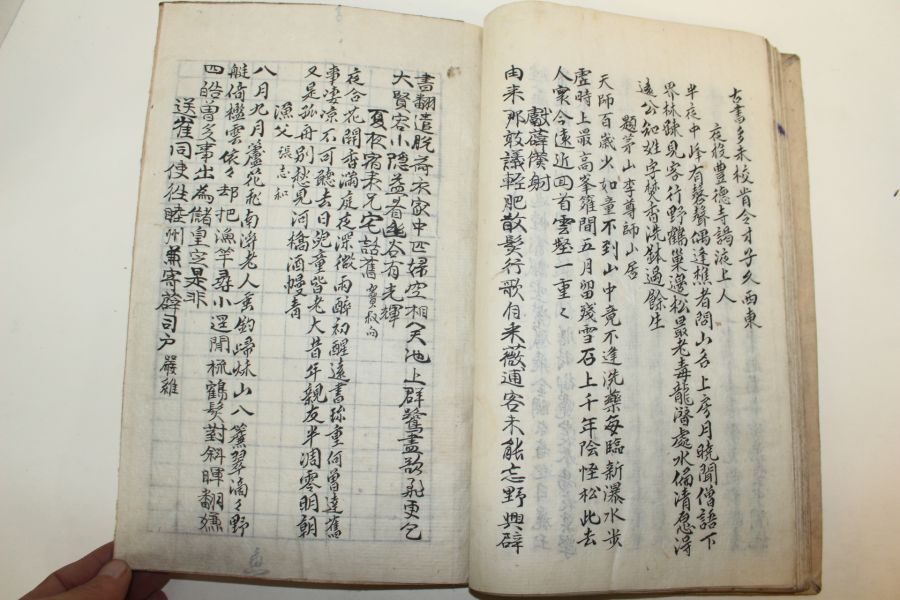 古書多未校肯令才子久西東
夜投豊德寺謁液上人
半夜中峰有磬聲偶逢樵者問山名上房月曉聞僧語下
界林疎見客行野鶴巢邊松最老毒龍潛處水偏清急得
遠公知姓字焚香洗鉢過餘生
題茅山李尊師山居
天師百歲少如童不到山中竟不逢洗藥每臨新瀑水步
虛時上最高峯籬間五月留殘雪石上千年陰怪松此去
人寰今遠近回首雲壑一重々
獻薛僕射
由來那敢議輕肥散髮行歌自采薇逋客未能忘野興辟
書翻遣脫荷衣家中匹婦空相笑池上群鷺盡欲飛更乞
大賢容小隱益看幽谷有光輝
夏夜宿表兄宅話舊 竇叔向
夜合花開香滿庭夜深微雨醉初醒遠書珍重何曾達舊
事凄凉不可聽去日兒童皆老大昔年親友半凋零明朝
又是孤舟別愁見河橋酒幔青
漁父 張志和
八月九月蘆花飛南溪老人垂釣歸秋山入簾翠滴々野
艇倚檻雲依々却把漁竿尋小逕閒梳鶴髮對斜暉翻嫌
四皓曾多事出為儲皇定是非
送崔同使往睦州兼寄薛司户 嚴維